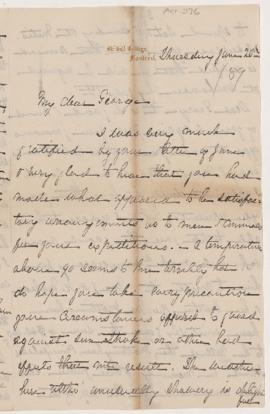 McGill College,
Montreal.
Thursday June 20th
/89
My dear George
I was very much
gratified by your letter of June
& very glad to hear that you had
made what appeared to be satisfac
tory arrangements as to men &
for your expeditions. - A temperature
above 90 seems to me terribly hot
do hope you take every precaution
your circumstances to guard
against sun-stroke or other bad
effects. The weather
here tho unusually showery is